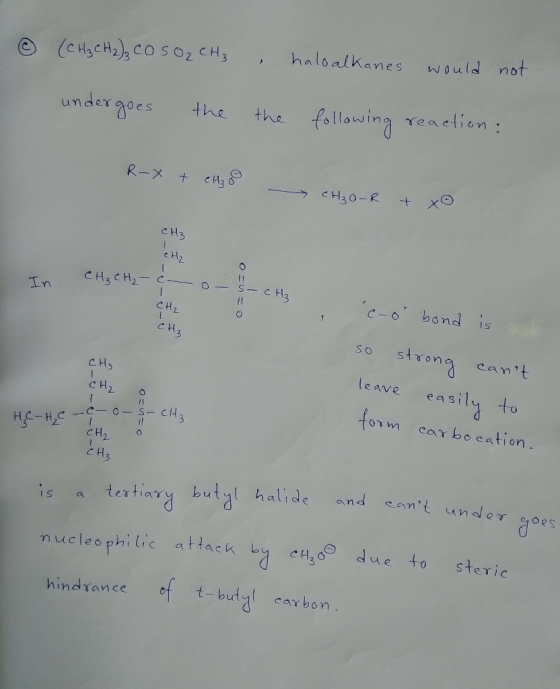 ⓒ (CH3CH2)3COSO2CH3 , haloalkanes would not
undergoes the the following reaction :
R-X + CH3O⊖ ⟶ CH3O-R + X⊖
CH3
CH2
In CH3CH2-C-O-S-CH3
O
O
CH2
CH3
, 'C-O' bond is
so strong can't
leave easily to
form carbocation.
CH3
CH2
O
H3C-H2C-C-O-S-CH3
CH2
O
CH3
is a tertiary butyl halide and can't under goes
nucleophilic attack by CH3O⊖ due to steric
hindrance of t-butyl carbon.